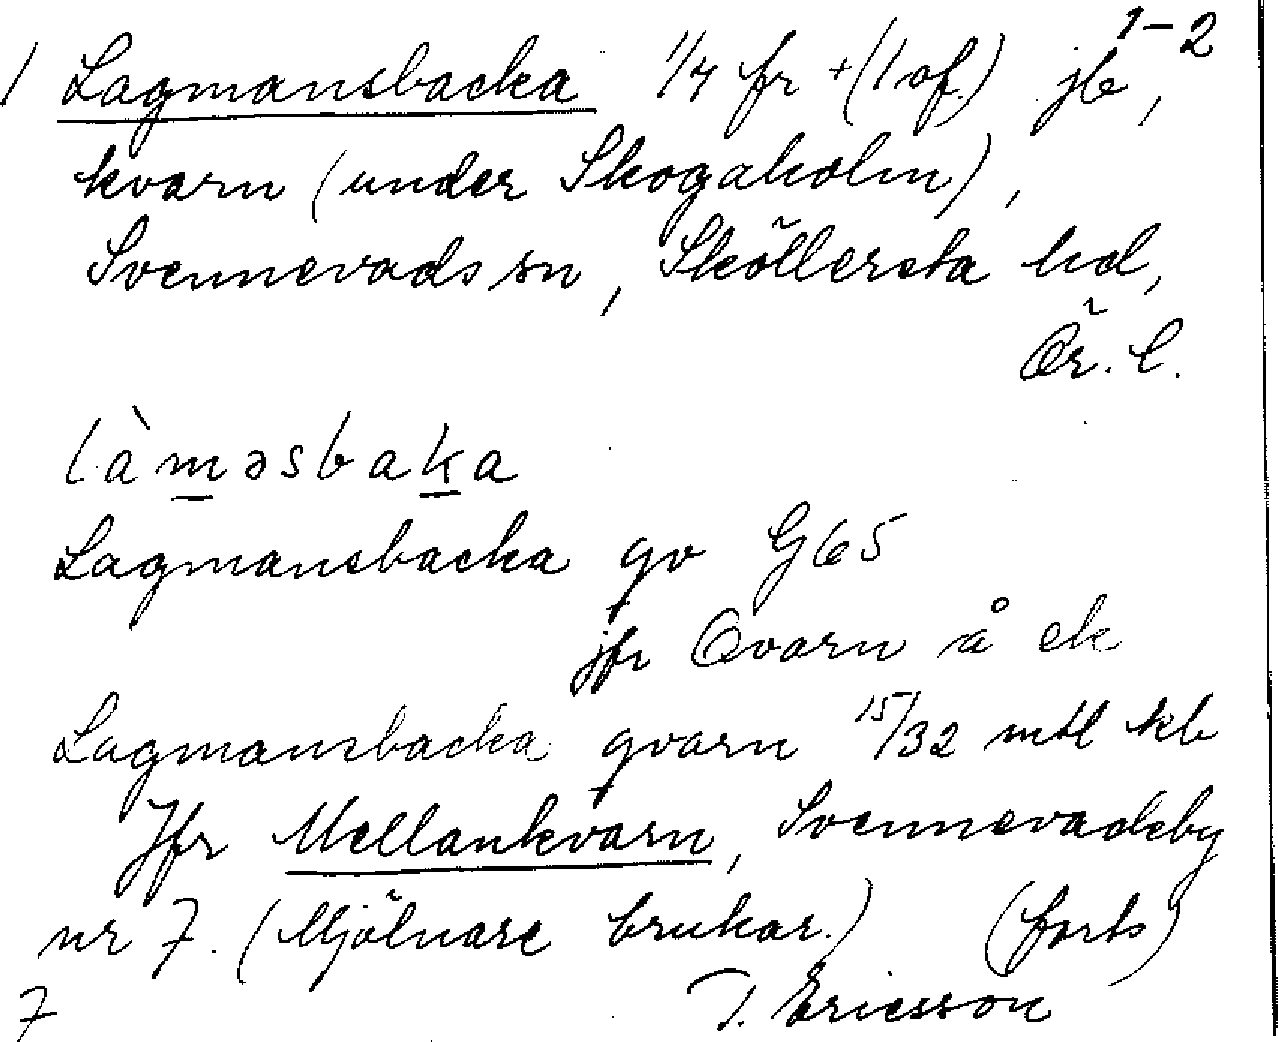 1-2
1 Lagmansbacka 1/4 fr +(1 of.) jb,
kvarn (under Skogaholm),
Svennevads sn, Sköllersta hd,
Ör. l.
làməsbaka
Lagmansbacka qv G65
jfr Qvarn å ek
Lagmansbacka qvarn 15/32 mtl
Jfr Mellankvarn, Svennevadsby
nr 7. (Mjölnare brukar.) (forts)
7 T. Ericsson